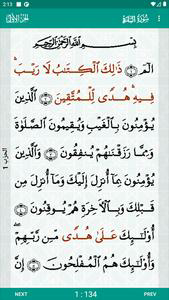 2:13
الجزء الأول
سُورَةُ البَقَرَةِ
بِسْمِ اللَّهِ الرَّحْمَٰنِ الرَّحِيمِ
الٓمٓ ۝١ ذَٰلِكَ ٱلْكِتَٰبُ لَا رَيْبَ ۛ
فِيهِ ۛ هُدًى لِّلْمُتَّقِينَ ۝٢ ٱلَّذِينَ
يُؤْمِنُونَ بِٱلْغَيْبِ وَيُقِيمُونَ ٱلصَّلَوٰةَ
وَمِمَّا رَزَقْنَٰهُمْ يُنفِقُونَ ۝٣ وَٱلَّذِينَ
يُؤْمِنُونَ بِمَآ أُنزِلَ إِلَيْكَ وَمَآ أُنزِلَ مِن
قَبْلِكَ وَبِٱلْـَٔاخِرَةِ هُمْ يُوقِنُونَ ۝٤
أُو۟لَٰٓئِكَ عَلَىٰ هُدًى مِّن رَّبِّهِمْ ۖ
وَأُو۟لَٰٓئِكَ هُمُ ٱلْمُفْلِحُونَ ۝٥
الحزب 1
NEXT
1 : 134
PREV